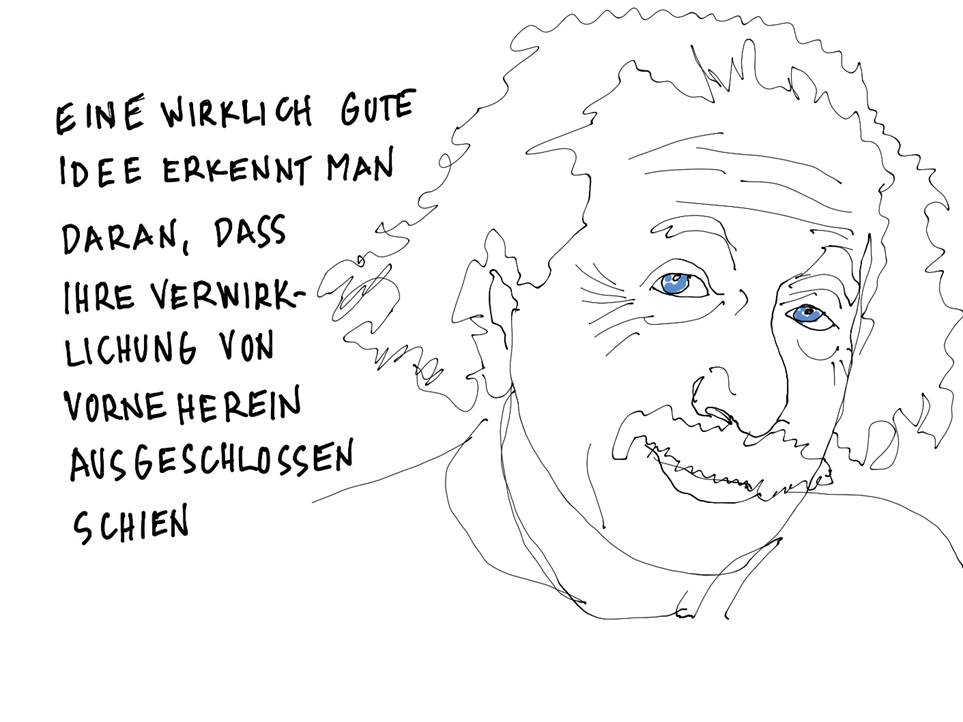 EINE WIRKLICH GUTE
IDEE ERKENNT MAN
DARAN, DASS
IHRE VERWIRK-
LICHUNG VON
VORNE HEREIN
AUSGESCHLOSSEN
SCHIEN